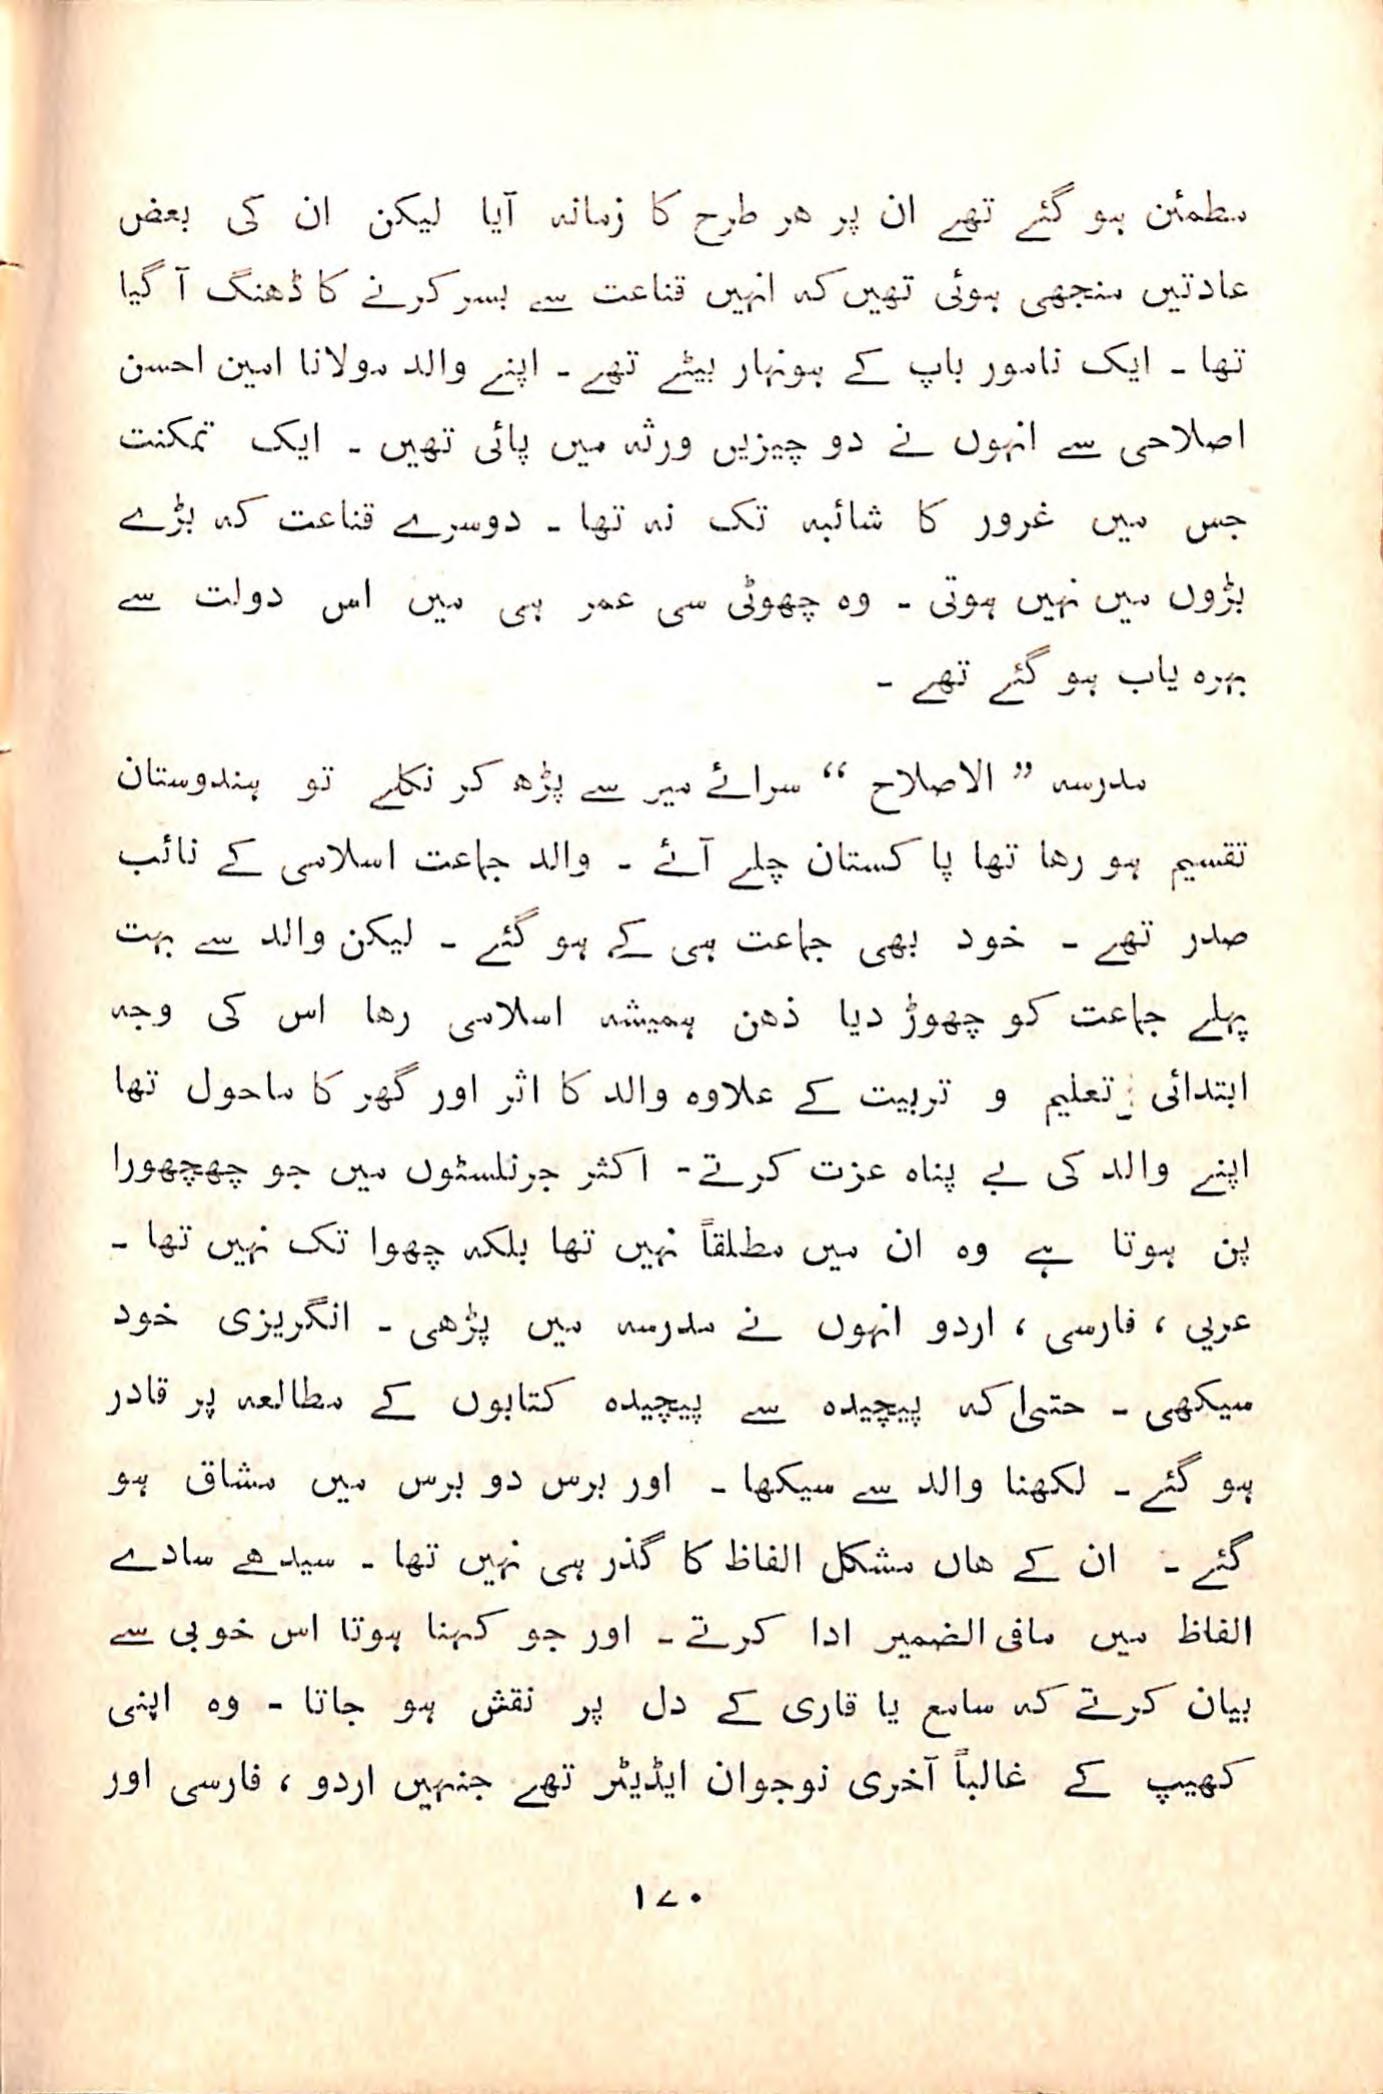 مطمئن ہو گئے تھے ان پر ھر طرح کا زمانہ آیا لیکن ان کی بعض
عادتیں منجھی ہوئی تھیں کہ انہیں قناعت سے بسر کرنے کا ڈھنگ آ گیا
تھا ۔ ایک نامور باپ کے ہونہار بیٹے تھے ۔ اپنے والد مولانا امین احسن
اصلاحی سے انہوں نے دو چیزیں ورثہ میں پائی تھیں ۔ ایک تمکنت
جس میں غرور کا شائبہ تک نہ تھا ۔ دوسرے قناعت کہ بڑے
بڑوں میں نہیں ہوتی ۔ وہ چھوٹی سی عمر ہی میں اس دولت سے
بہرہ یاب ہو گئے تھے ۔
مدرسہ ” الاصلاح “ سرائے میر سے پڑھ کر نکلے تو ہندوستان
تقسیم ہو رھا تھا پاکستان چلے آئے ۔ والد جماعت اسلامی کے نائب
صدر تھے ۔ خود بھی جماعت ہی کے ہو گئے ۔ لیکن والد سے بہت
پہلے جماعت کو چھوڑ دیا ذھن ہمیشہ اسلامی رھا اس کی وجہ
ابتدائی تعلیم و تربیت کے علاوہ والد کا اثر اور گھر کا ماحول تھا
اپنے والد کی بے پناہ عزت کرتے ۔ اکثر جرنلسٹوں میں جو چھچھورا
پن ہوتا ہے وہ ان میں مطلقاً نہیں تھا بلکہ چھوا تک نہیں تھا ۔
عربی ، فارسی ، اردو انہوں نے مدرسہ میں پڑھی ۔ انگریزی خود
سیکھی ۔ حتیٰ کہ پیچیدہ سے پیچیدہ کتابوں کے مطالعہ پر قادر
ہو گئے ۔ لکھنا والد سے سیکھا ۔ اور برس دو برس میں مشاق ہو
گئے ۔ ان کے ھاں مشکل الفاظ کا گذر ہی نہیں تھا ۔ سیدھے سادے
الفاظ میں مافی الضمیر ادا کرتے ۔ اور جو کہنا ہوتا اس خوبی سے
بیان کرتے کہ سامع یا قاری کے دل پر نقش ہو جاتا ۔ وہ اپنی
کھیپ کے غالباً آخری نوجوان ایڈیٹر تھے جنہیں اردو ، فارسی اور
۱۷۰